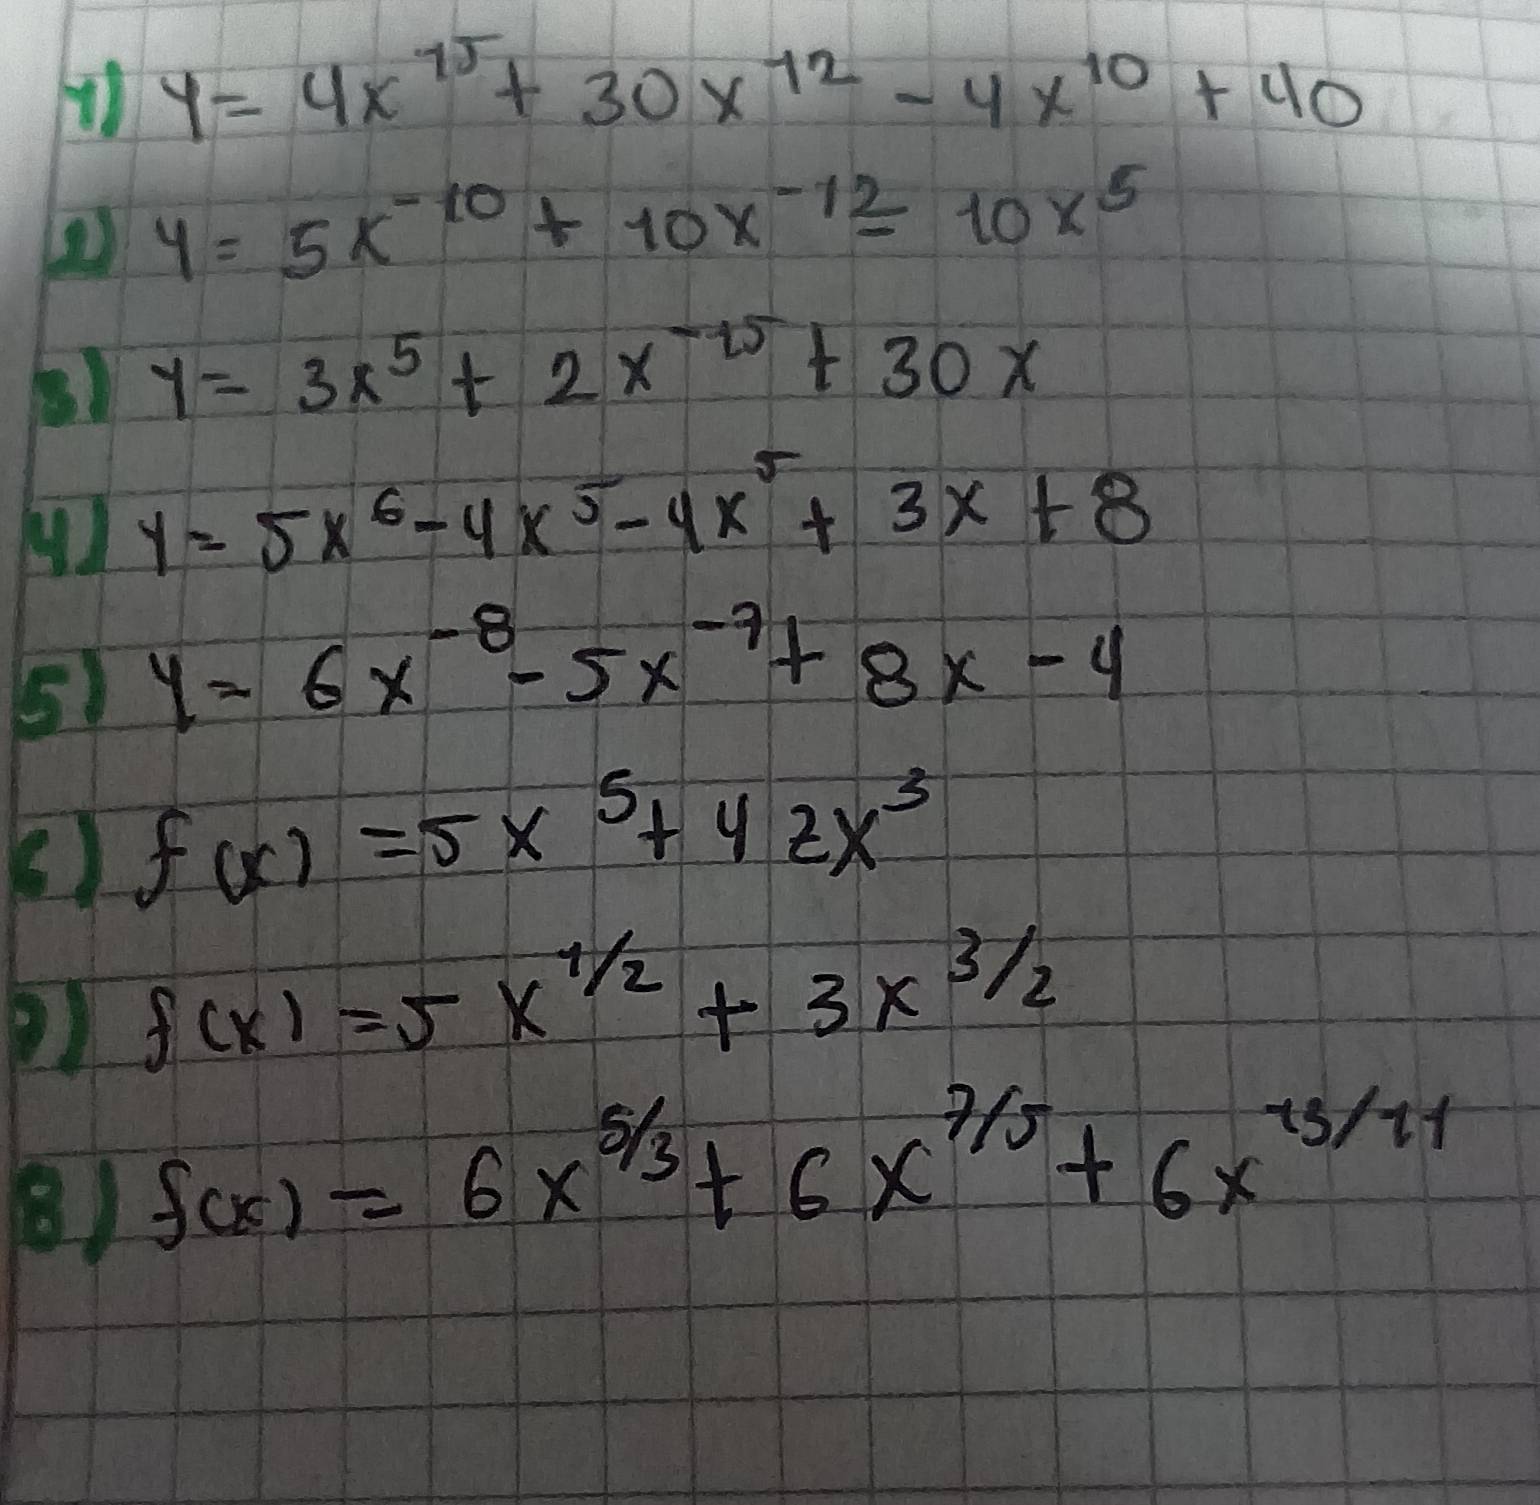 1) y = 4x^15 + 30x^12 - 4x^10 + 40
2) y = 5x^-10 + 10x^-12 - 10x^5
3) y = 3x^5 + 2x^-15 + 30x
4) y = 5x^6 - 4x^5 - 4x^5 + 3x + 8
5) y = 6x^-8 - 5x^-7 + 8x - 4
6) f(x) = 5x^5 + 42x^3
7) f(x) = 5x^1/2 + 3x^3/2
8) f(x) = 6x^5/3 + 6x^7/5 + 6x^13/11